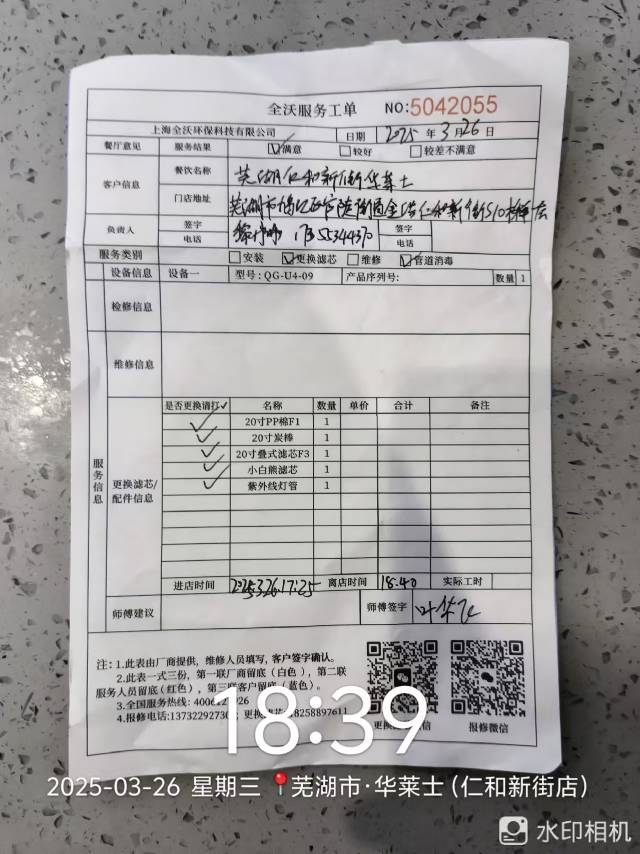 全沃服务工单 NO:5042055
上海全沃环保科技有限公司 日期 2025年3月26日
餐厅意见 服务结果 ☑满意 □较好 □较差不满意
客户信息 餐饮名称 芜湖仁和新街华莱士
门店地址 芜湖市 仁和新街S10
负责人 签字 签字
电话 电话
服务类别 □安装 ☑更换滤芯 □维修 ☑管道消毒
设备信息 设备一 型号:QG-U4-09 产品序列号: 数量 1
检修信息
维修信息
服务信息
更换滤芯/配件信息
是否更换请打✓ 名称 数量 单价 合计 备注
✓ 20寸PP棉F1 1
✓ 20寸炭棒 1
✓ 20寸叠式滤芯F3 1
✓ 小白熊滤芯 1
✓ 紫外线灯管 1
进店时间 2025.3.26 17:25 离店时间 18:40 实际工时
师傅建议 师傅签字
注:1.此表由厂商提供,维修人员填写,客户签字确认。
2.此表一式三份,第一联厂商留底(白色),第二联
服务人员留底(红色),第三联客户留底(蓝色)。
3.全国服务热线:
4.报修电话:
报修微信
18:39
2025-03-26 星期三 📍芜湖市·华莱士(仁和新街店)
水印相机